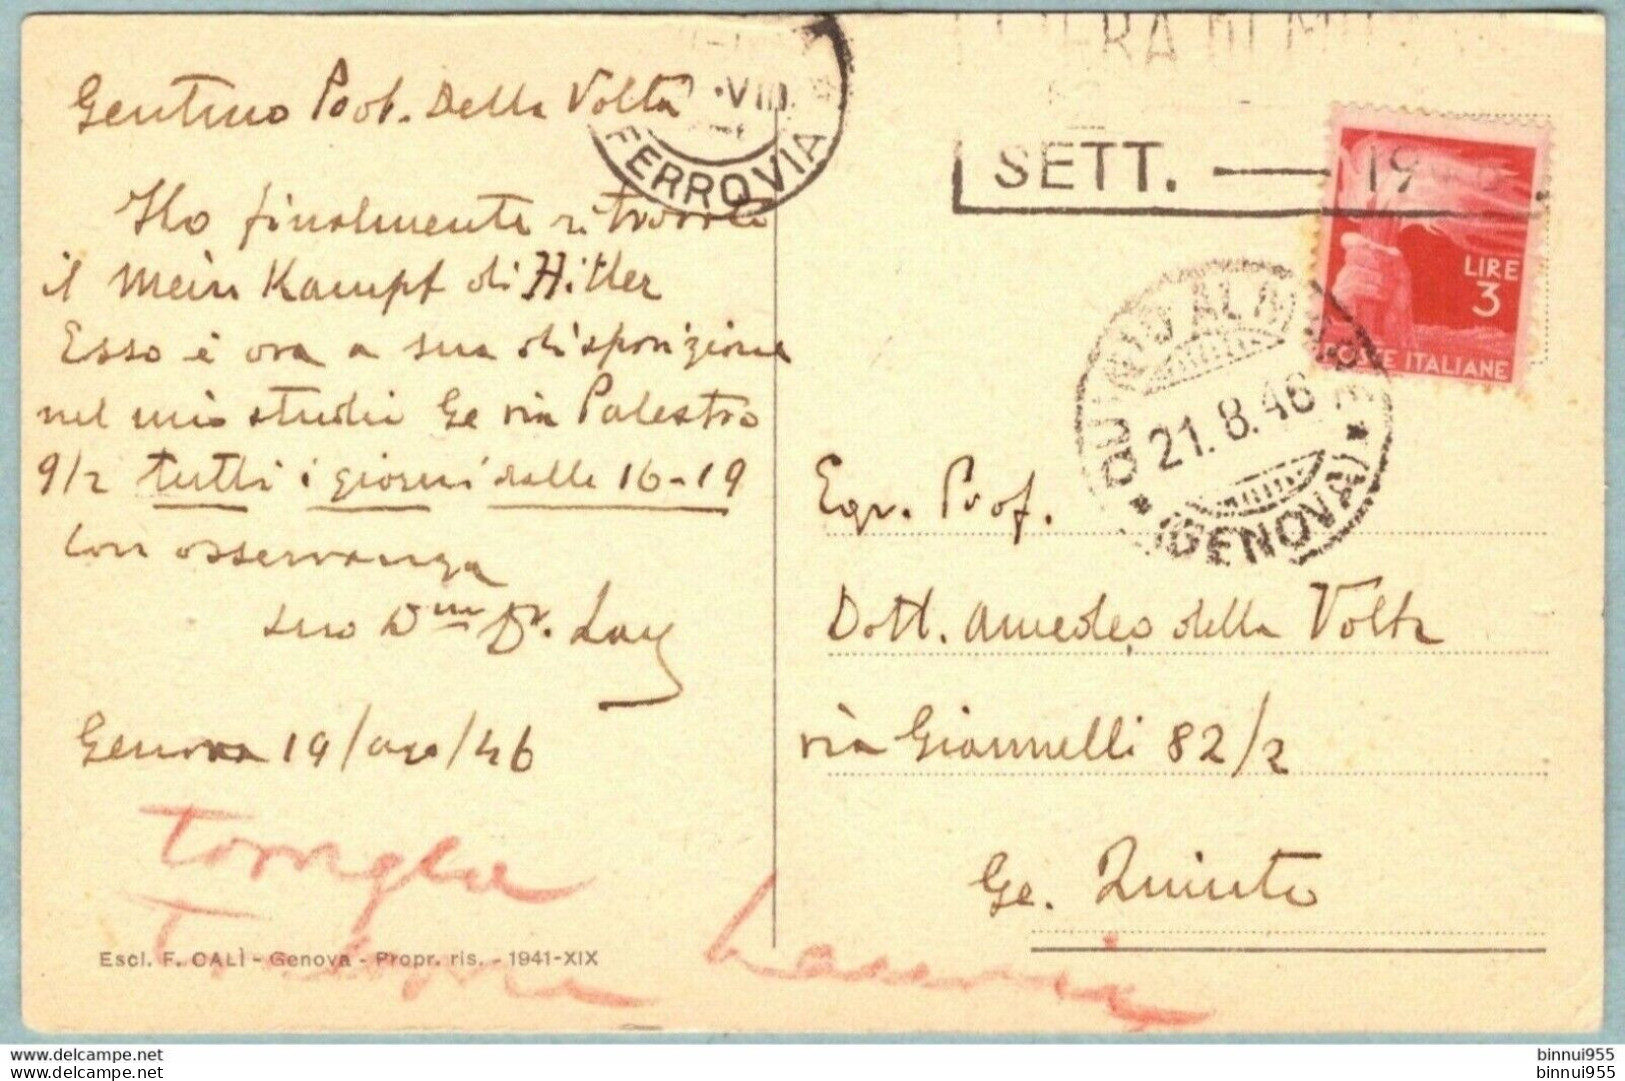 Gentmo Prof. Della Volta
Ho finalmente ritrovato
il Mein Kampf di Hitler
Esso è ora a sua disposizione
nel mio studio Ge via Palestro
9/2 tutti i giorni dalle 16-19
con osservanza
suo Dmo Dr.
Genova 19/ago/46
Escl. F. CALÌ - Genova - Propr. ris. - 1941-XIX
VIII
FERROVIA
FIERA DI
SETT. — 19
LIRE
3
POSTE ITALIANE
QUINTO AL MARE
21.8.46
(GENOVA)
Egr. Prof.
Dott. Amedeo della Volta
via Giannelli 82/2
Ge. Quinto
delcampe.net
delcampe.net
binnui955
binnui955